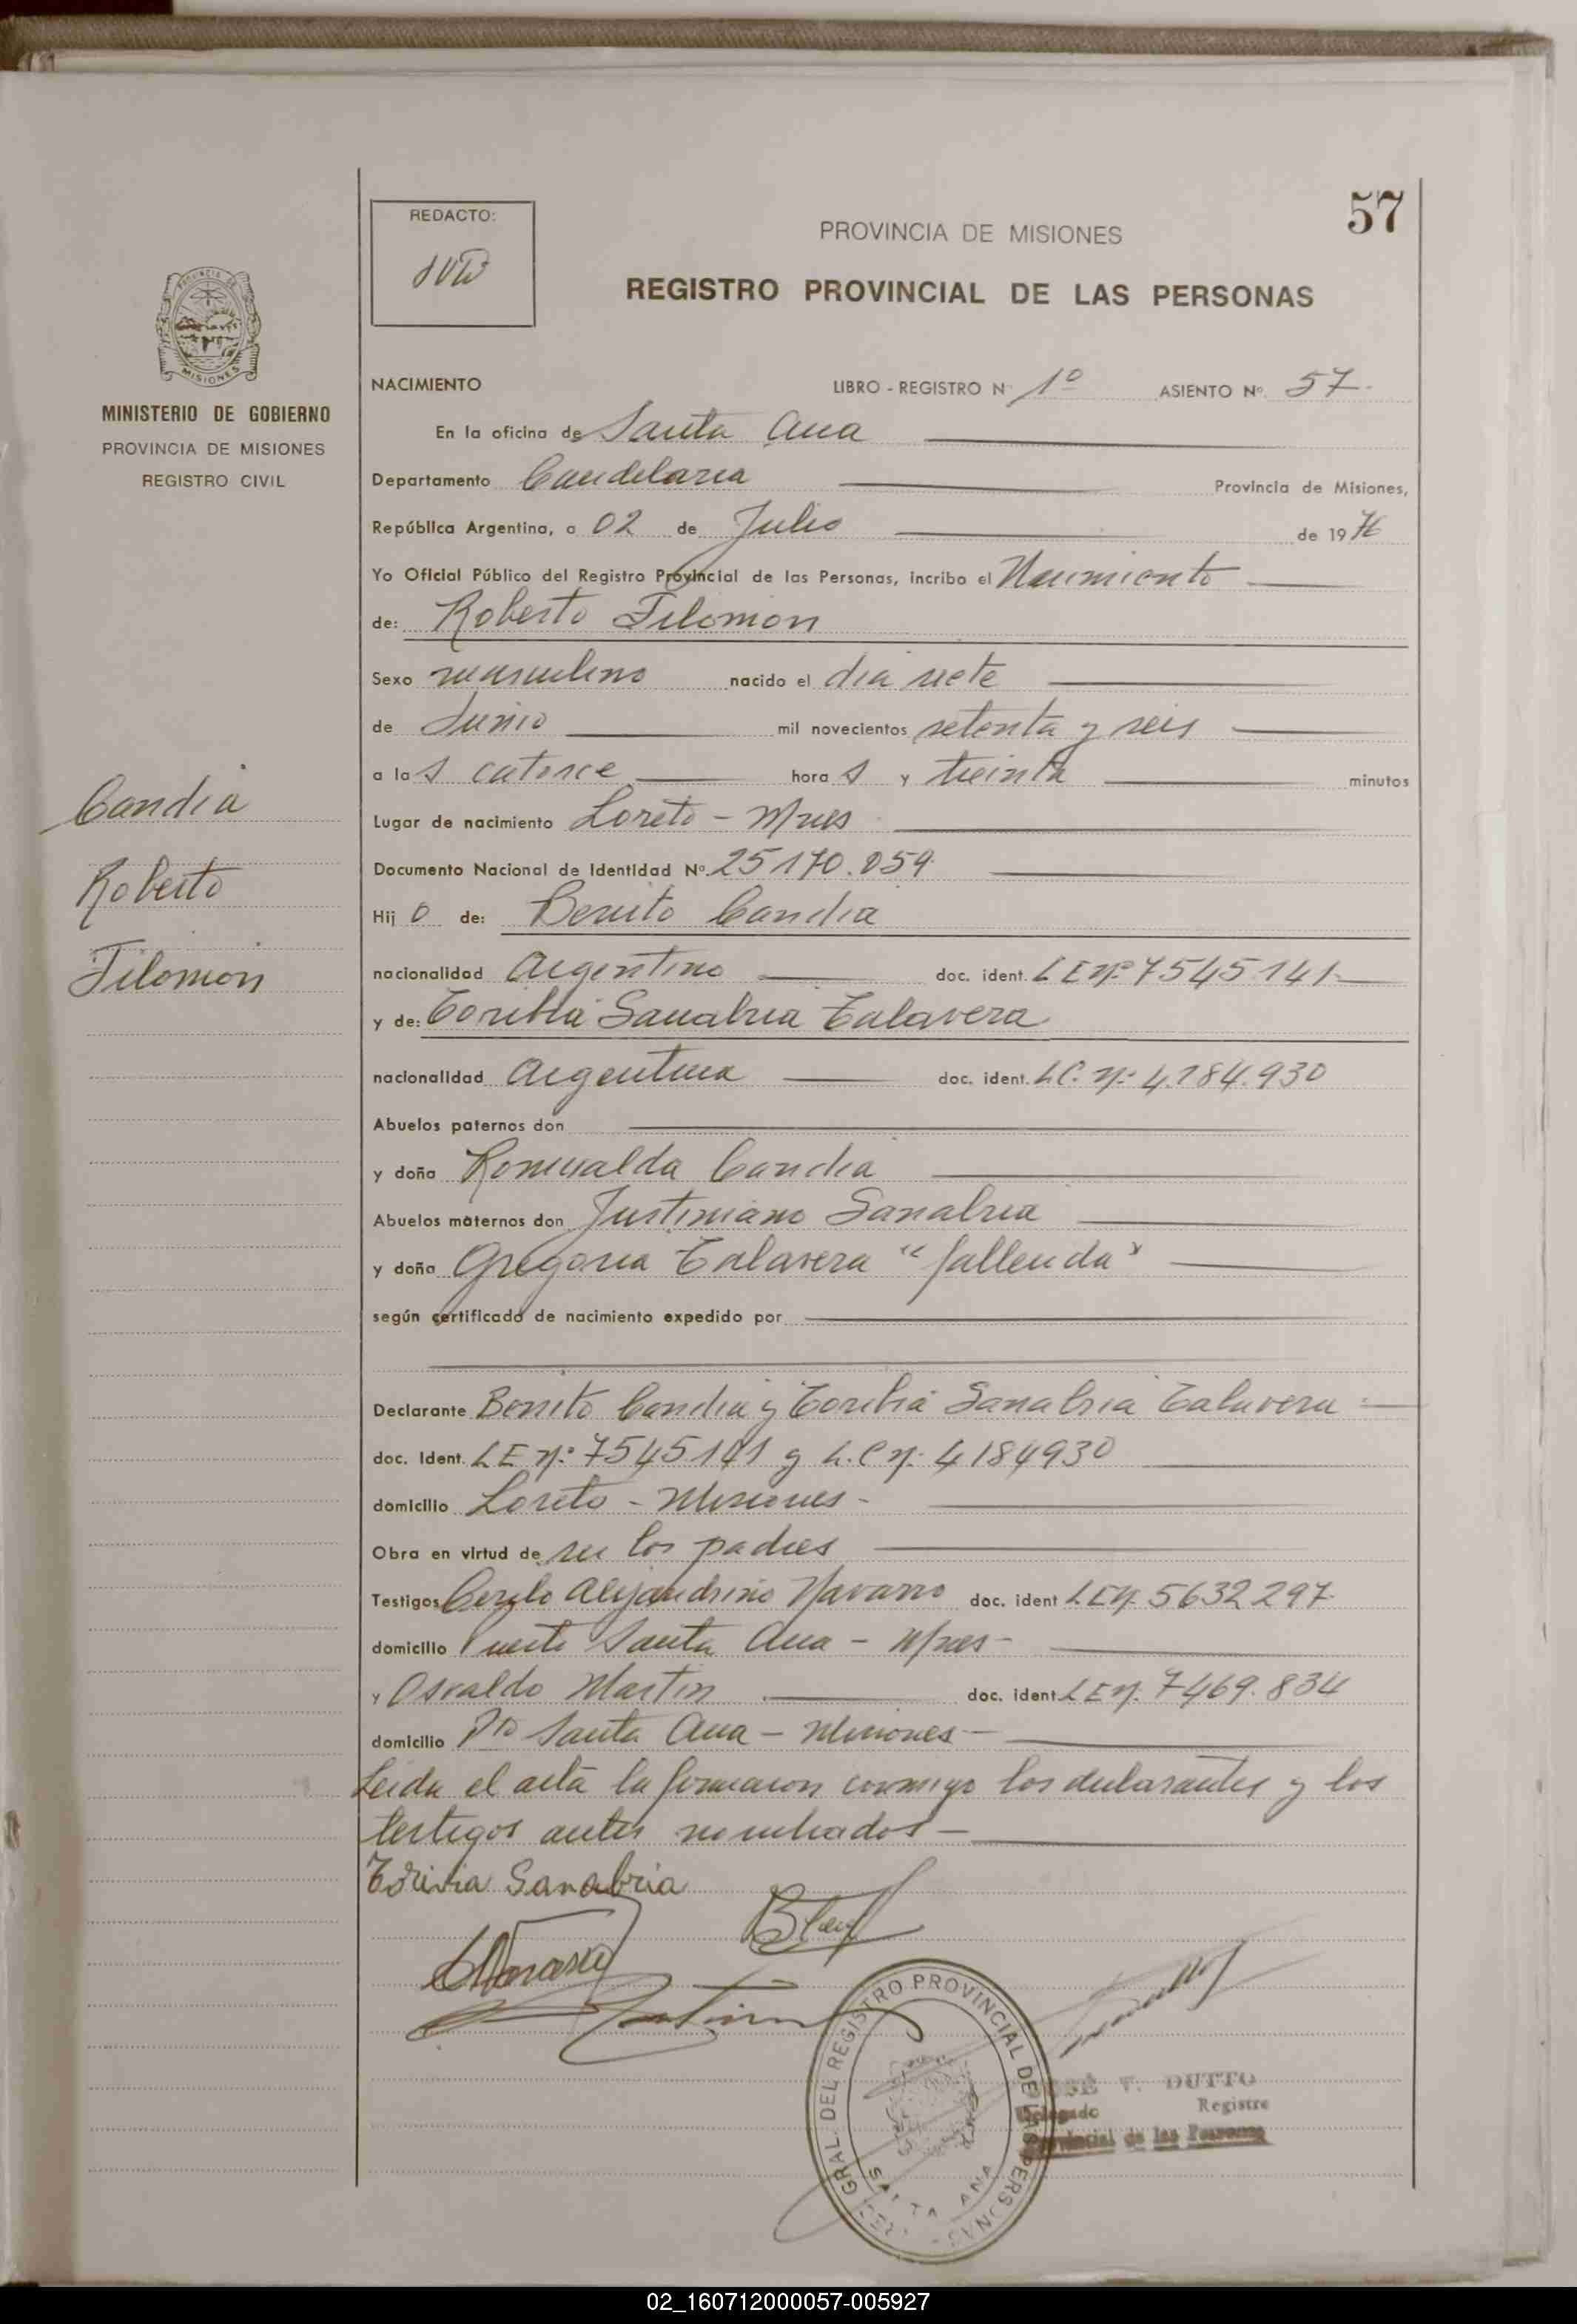 57
REDACTO:
JVD
PROVINCIA DE MISIONES
REGISTRO PROVINCIAL DE LAS PERSONAS
PROVINCIA DE
MISIONES
MINISTERIO DE GOBIERNO
PROVINCIA DE MISIONES
REGISTRO CIVIL
Candia
Roberto
Filomon
NACIMIENTO LIBRO - REGISTRO N· 1º ASIENTO Nº. 57.
En la oficina de Santa Ana
Departamento Candelaria Provincia de Misiones,
República Argentina, a 02 de Julio de 1976
Yo Oficial Público del Registro Provincial de las Personas, incribo el Nacimiento
de: Roberto Filomon
Sexo masculino nacido el dia siete
de Junio mil novecientos setenta y seis
a las catorce horas y treinta minutos
Lugar de nacimiento Loreto - Mnes
Documento Nacional de Identidad Nº. 25170.059
Hijo de: Benito Candia
nacionalidad Argentino doc. ident. LE Nº 7545141
y de: Toribia Sanabria Talavera
nacionalidad Argentina doc. ident. LC. Nº 4.184.930
Abuelos paternos don
y doña Romualda Candia
Abuelos maternos don Justiniano Sanabria
y doña Gregoria Talavera "fallecida"
según certificado de nacimiento expedido por
Declarante Benito Candia y Toribia Sanabria Talavera
doc. Ident. LE Nº 7545141 y L.C Nº 4184930
domicilio Loreto - Misiones -
Obra en virtud de ser los padres
Testigos Cerilo Alejandrino Navarro doc. ident LEN. 5632297
domicilio Puerto Santa Ana - Mnes-
y Osvaldo Martin doc. ident. LEN. 7469.834
domicilio Pto Santa Ana - Misiones -
Leida el acta la firmaron conmigo los declarantes y los
testigos antes nombrados -
Torivia Sanabria
GRAL. DEL REGISTRO PROVINCIAL DE LAS PERSONAS
SANTA ANA
JOSÉ V. DUTTO
Delegado Registro
Provincial de las Personas
02_160712000057-005927